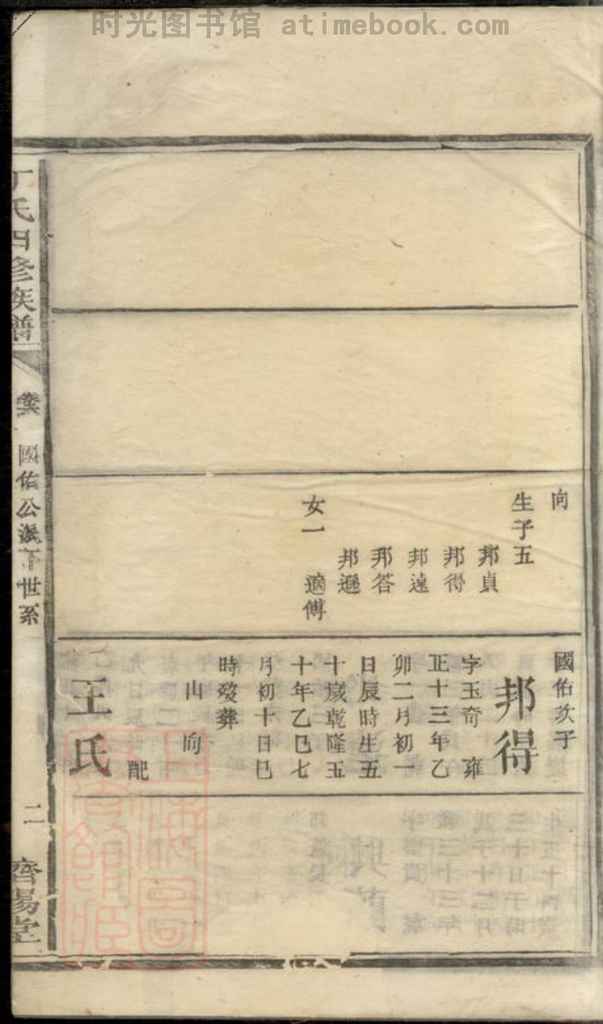 时光图书馆 atimebook.com
向
生子五
邦貞
邦得
邦遠
邦答
邦遜
女一
適傅
國佑次子
邦得
字玉奇 雍
正十三年乙
卯二月初一
日辰時生五
十歲乾隆五
十年乙巳七
月初十日巳
時歿葬
山 向
配
王氏
丁氏四修族譜
卷 國佑公派下世系
二
齊陽堂